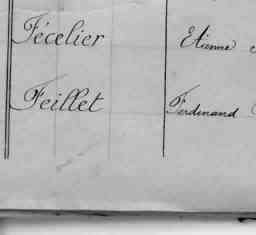 Fécelier Etienne
Feillet Ferdinand